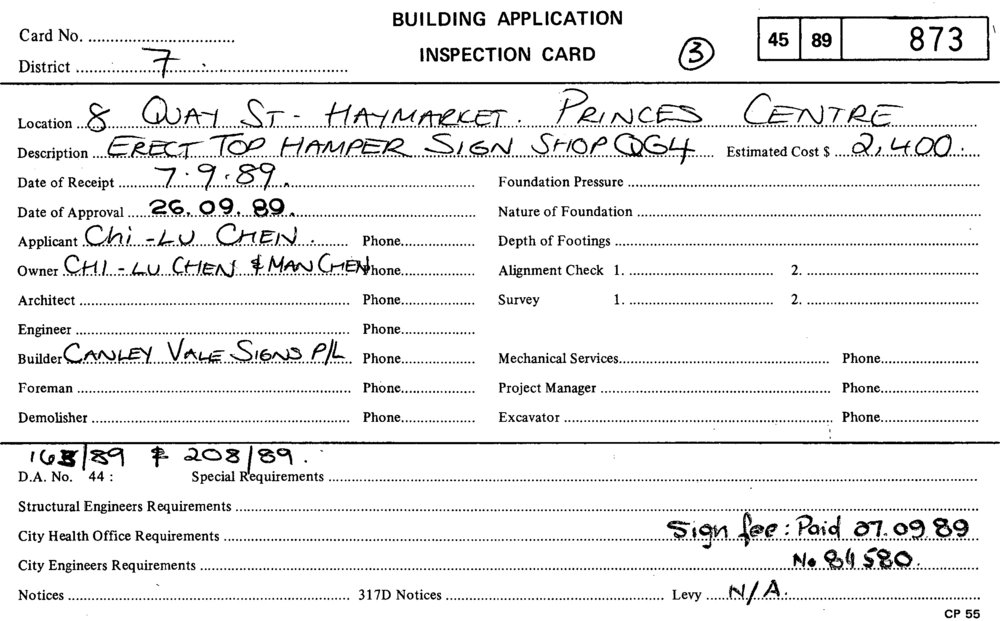 BUILDING APPLICATION
INSPECTION CARD
Card No.
District 7
3
45 89 873
Location 8 QUAY ST - HAYMARKET. PRINCES CENTRE
Description ERECT TOP HAMPER SIGN SHOP QG4 Estimated Cost $ 2,400
Date of Receipt 7.9.89. Foundation Pressure
Date of Approval 26.09.89. Nature of Foundation
Applicant Chi-LU CHEN Phone Depth of Footings
Owner CHI-LU CHEN & MAN CHEN Phone Alignment Check 1. 2.
Architect Phone Survey 1. 2.
Engineer Phone
Builder CANLEY VALE SIGNS P/L Phone Mechanical Services Phone
Foreman Phone Project Manager Phone
Demolisher Phone Excavator Phone
& 208/89.
D.A. No. 44 : Special Requirements
Structural Engineers Requirements
City Health Office Requirements Sign fee: Paid 07.09 89
City Engineers Requirements No 84580.
Notices 317D Notices Levy N/A.
CP 55